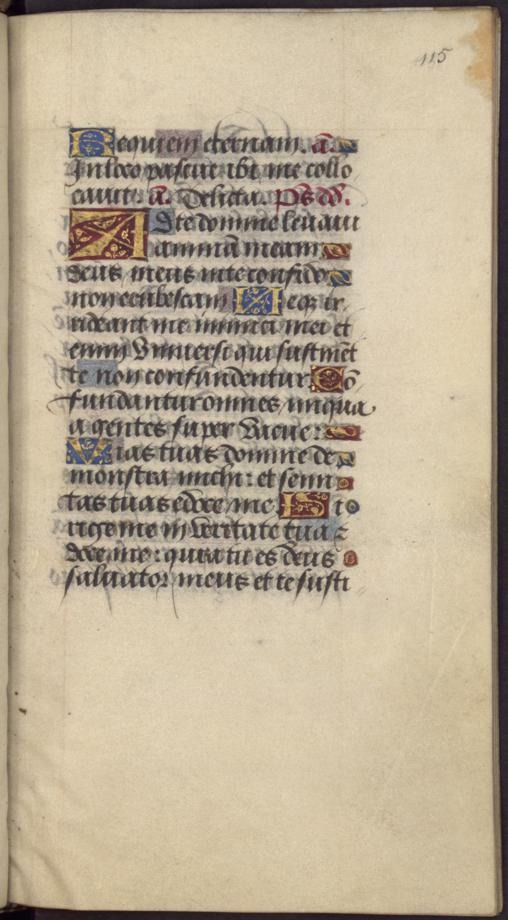 115
Requiem eternam. a.
In loco pascue ibi me collo
cavit. a. Delicta. Ps dd.
Ad te domine levavi
animā meam
deus meus in te confido
non erubescam Neqz ir
rideant me inimici mei et
enim Vniversi qui sustinēt
te non confundentur Cō
fundantur omnes iniqua
a gentes super Vacue:
Vias tuas domine de
monstra michi: et semi
tas tuas edoce me Di
rige me in Veritate tua z
doce me: quia tu es deus
salvator meus et te susti